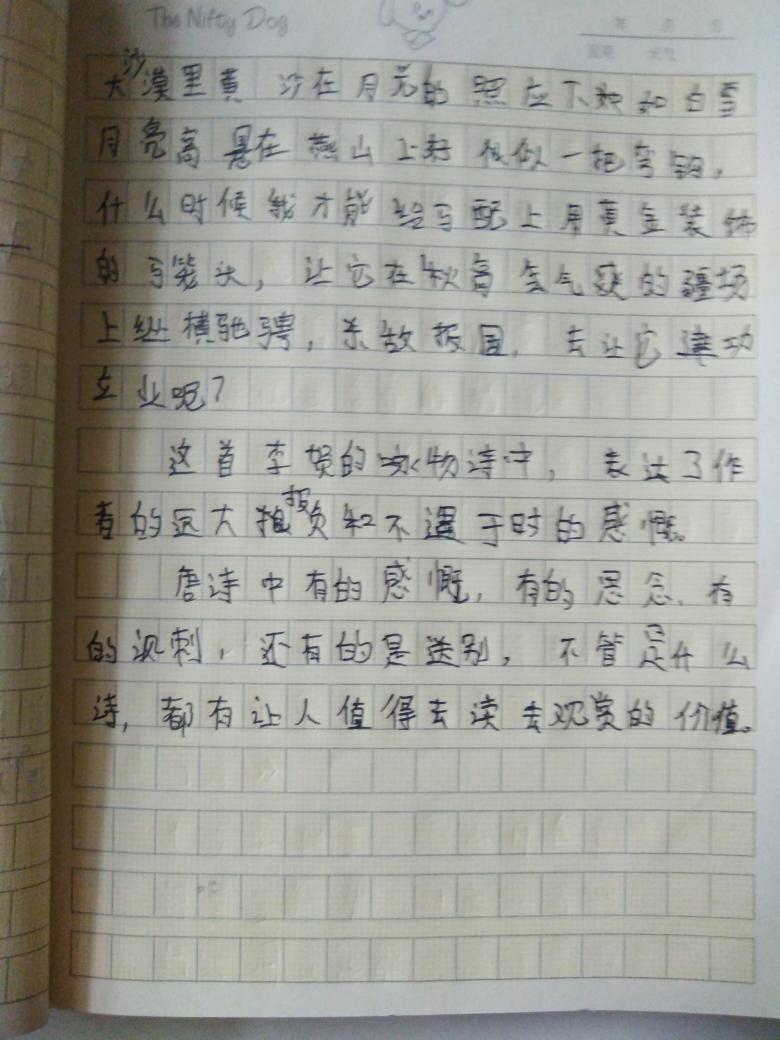 The Nifty Dog
年 月 日
星期 天气
大沙漠里黄沙在月亮的照应下犹如白雪
月亮高悬在燕山上好似一把弯钩,
什么时候我才能给马配上用黄金装饰
的马笼头,让它在秋高气爽的疆场
上纵横驰骋,杀敌报国,去让它建功
立业呢?
这首李贺的咏物诗中,表达了作
者的远大抱负和不遇于时的感慨。
唐诗中有的感慨,有的思念,有
的讽刺,还有的是送别,不管是什么
诗,都有让人值得去读去观赏的价值。